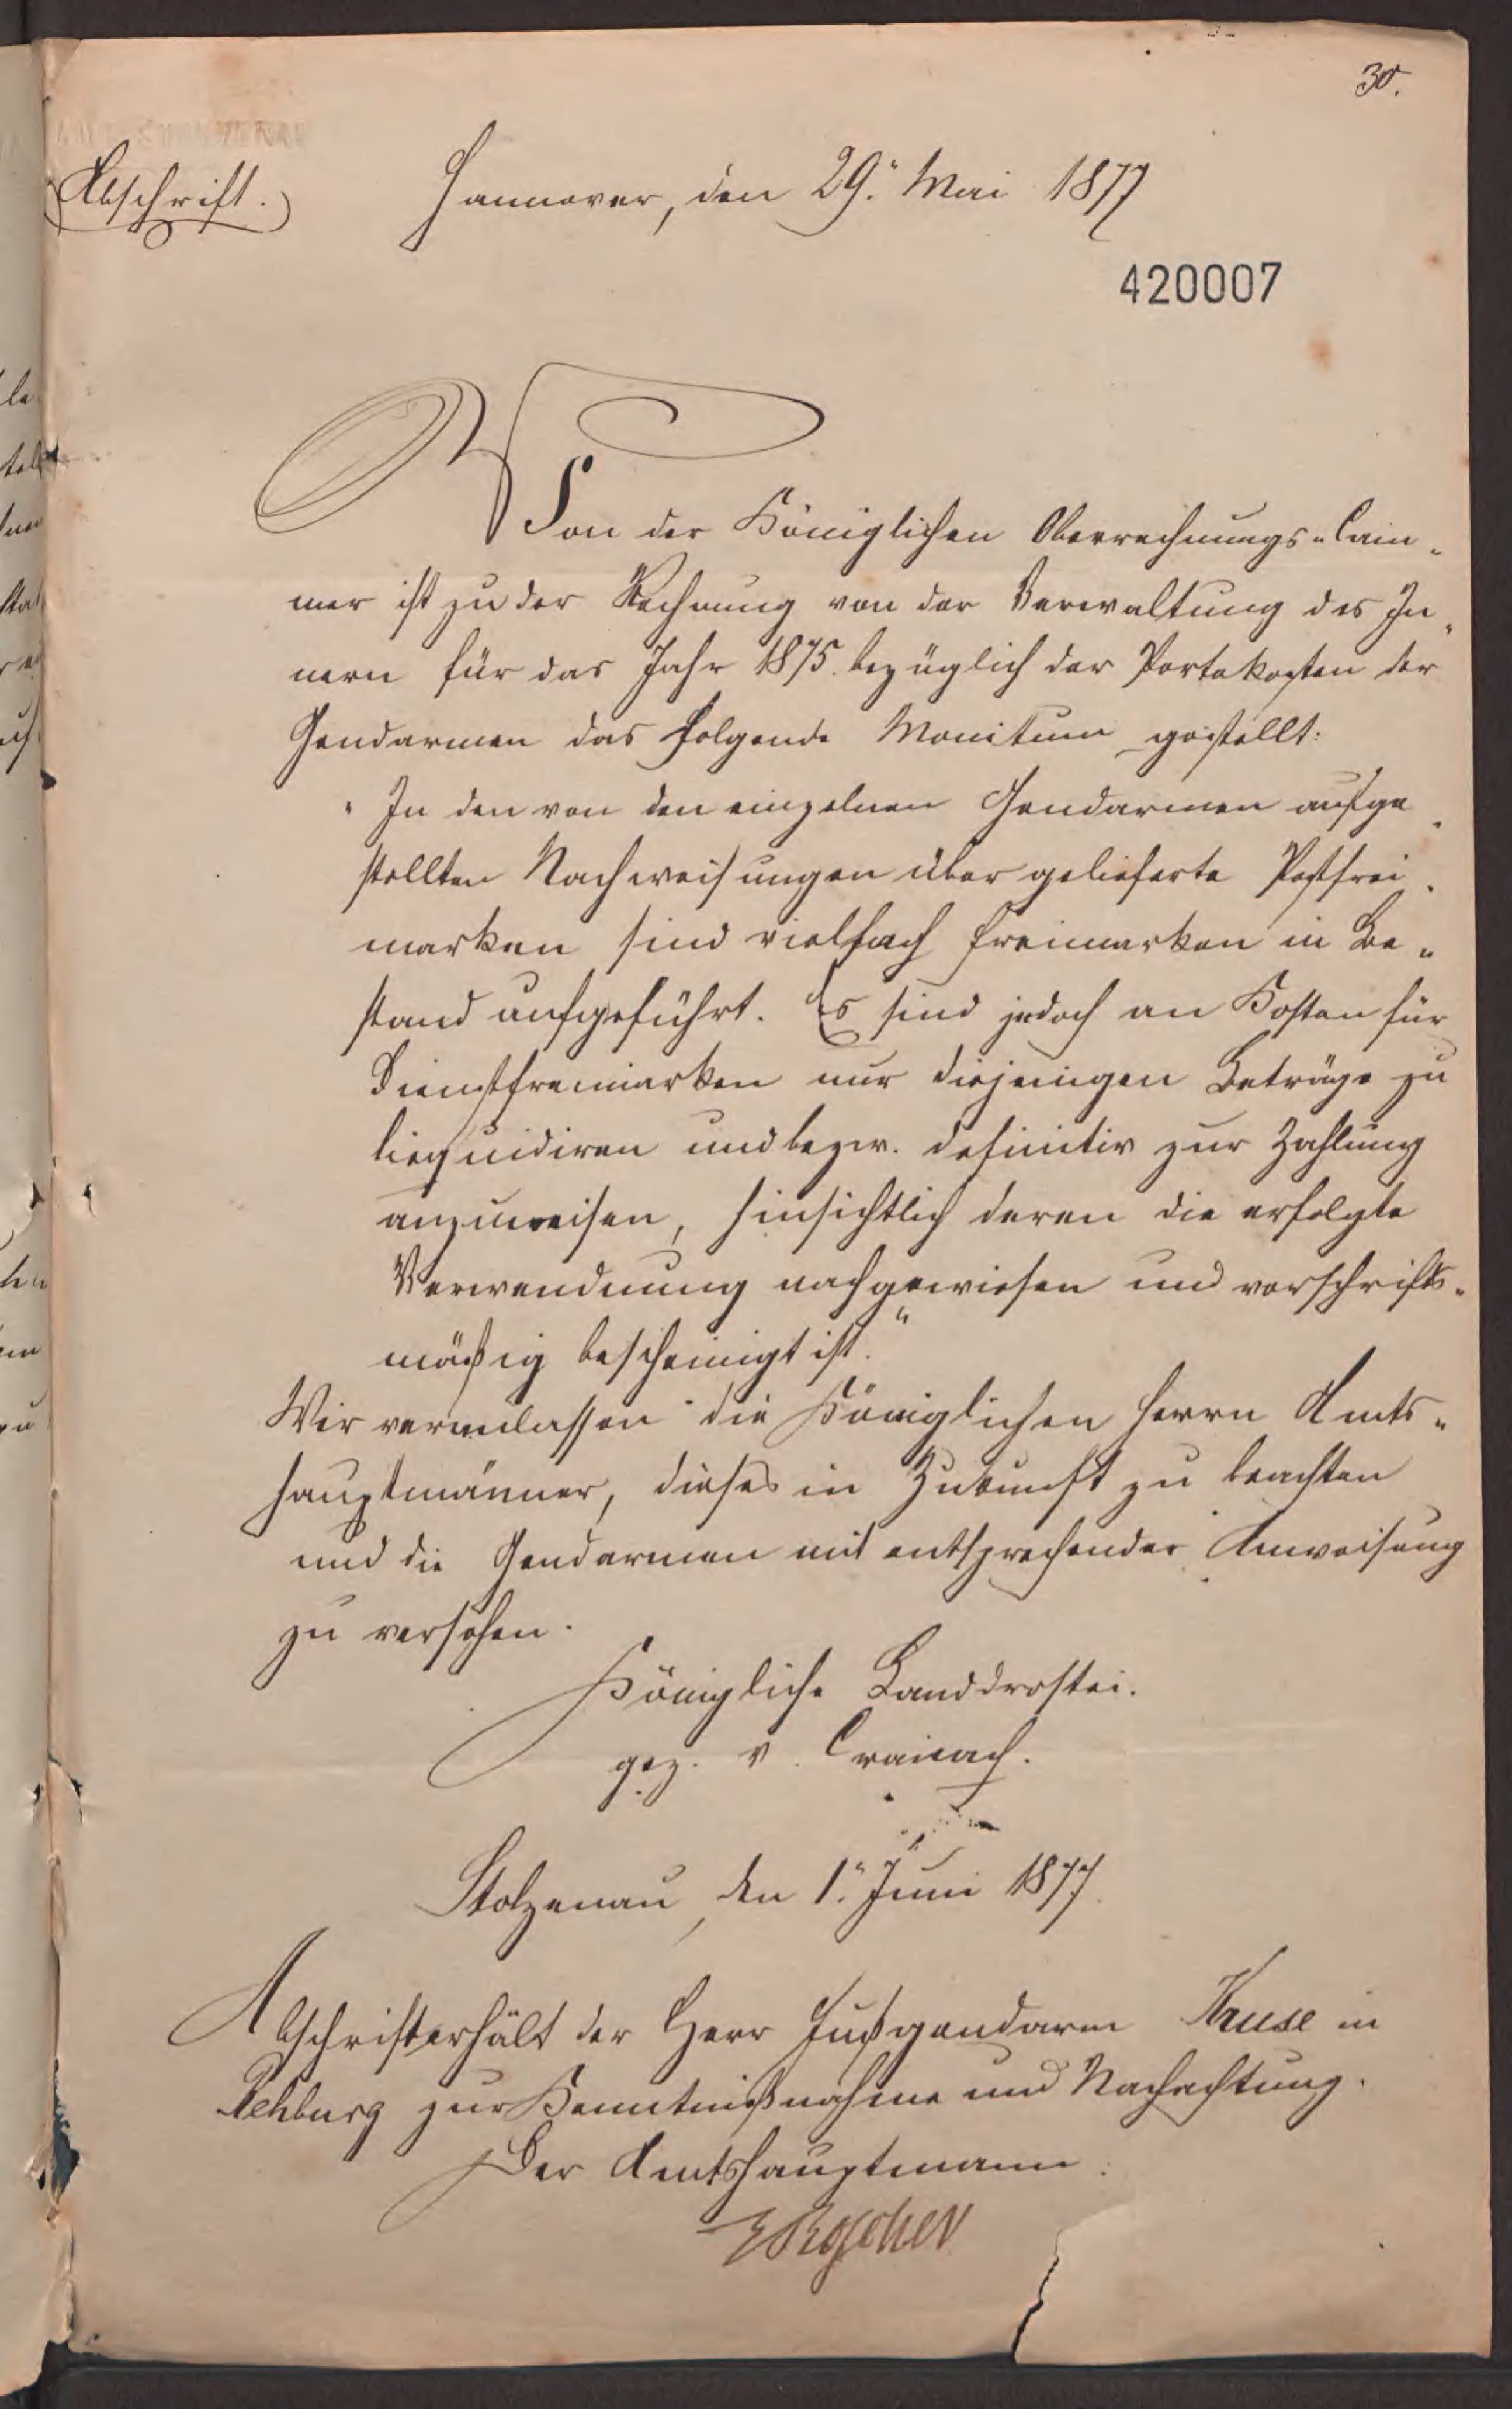 30.
Abschrift.
Hannover, den 29. Mai 1877
420007
Von der Königlichen Oberrechnungs-Cam-
mer ist zu der Rechnung von der Verwaltung des In-
nern für das Jahr 1875. bezüglich der Portokosten der
Gendarmen das folgende Monitum gestellt:
"In den von den einzelnen Gendarmen aufge-
stellten Nachweisungen über gelieferte Postfrei-
marken sind vielfach Freimarken in Be-
stand aufgeführt. Es sind jedoch an Kosten für
Dienstfreimarken nur diejenigen Beträge zu
liequidiren und bezw. definitiv zur Zahlung
anzuweisen, hinsichtlich deren die erfolgte
Verwendnung nachgewiesen und vorschrifts-
mäßig bescheinigt ist."
Wir veranlassen die Königlichen Herrn Amts-
hauptmänner, dieses in Zukunft zu beachten
und die Gendarmen mit entsprechender Anweisung
zu versehen.
Königliche Landdrostei.
gez. v. Cranach.
Stolzenau, den 1. Juni 1877.
Abschrift erhält der Herr Fußgendarm Kruse in
Rehburg zur Kenntnißnahme und Nachachtung.
Der Amtshauptmann:
Roscher